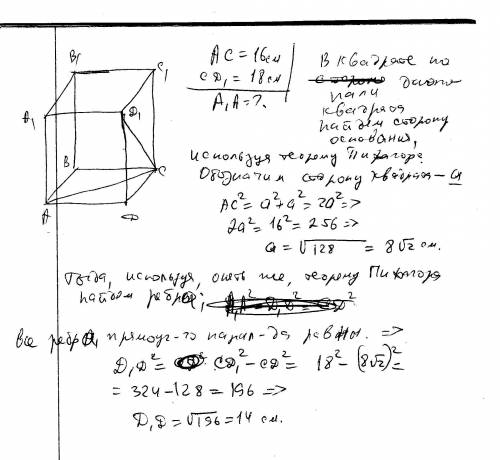 B₁
C₁
A₁
D₁
B
C
A
D
AC = 16 см
CD₁ = 18 см
A₁A = ?
В квадрате по
диаго
нали
квадрата
найдём сторону
основания,
используя теорему Пифагора
Обозначим сторону квадрата – a
AC² = a² + a² = 2a² =>
2a² = 16² = 256 =>
a = √128 = 8√2 см.
Тогда, используя, опять же, теорему Пифагора
найдем ребро;
Все ребра прямоуг-го парал-да равны. =>
D₁D² = CD₁² – CD² = 18² – (8√2)² =
= 324 – 128 = 196 =>
D₁D = √196 = 14 см.